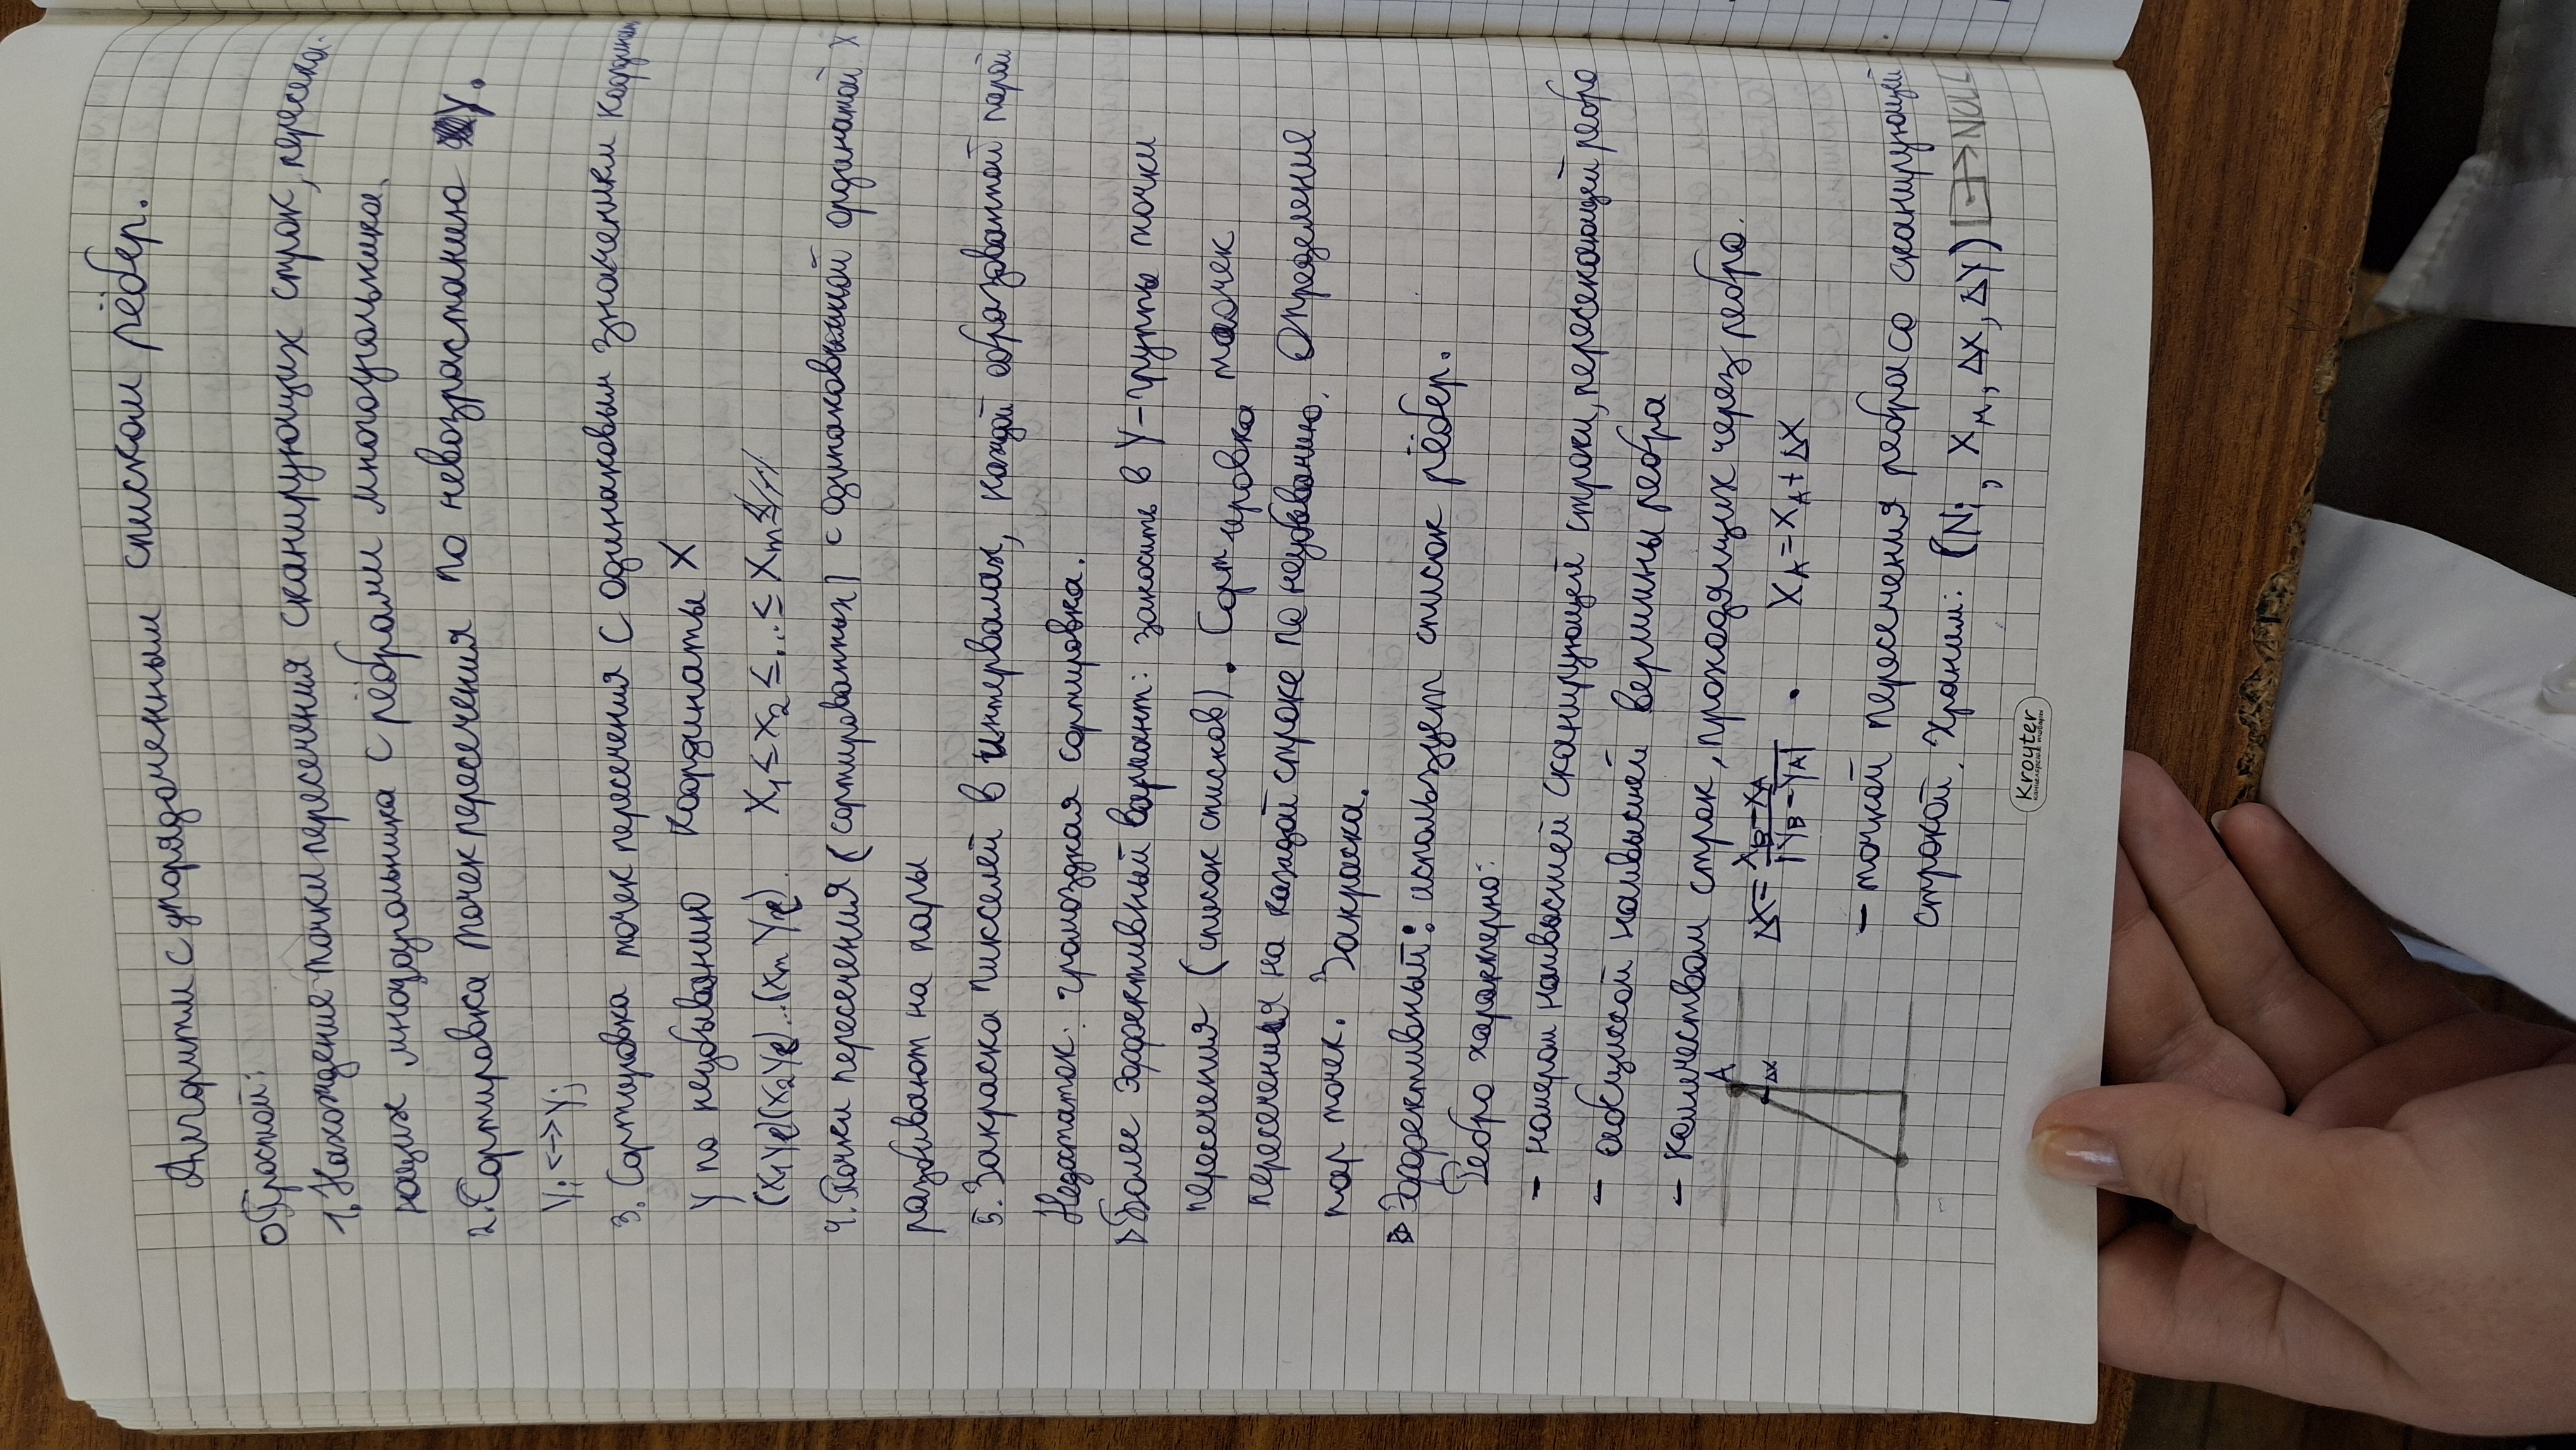 Алгоритм с упорядоченным списком рёбер.
Простой:
1. Нахождение точки пересечения сканирующих строк, пересека-
ющих многоугольника с рёбрами многоугольника.
2. Сортировка точек пересечения по невозрастанию Y.
Yi <-> Yj
3. Сортировка точек пересечения с одинаковым значением координаты
Y по неубыванию координаты X
X1 ≤ X2 ≤ ... ≤ Xm
4. Точки пересечения (сортированных) с одинаковой ординатой X
разбивают на пары
5. Закраска пикселей в интервалах, каждой образованной парой
Недостаток: громоздкая сортировка.
Более эффективный вариант: заносить в Y-группы точки
пересечения (список списков). Сортировка точек
пересечения на каждой строке по неубыванию. Определение
пар точек. Закраска.
Эффективный: использует список рёбер.
Ребро характерно:
- номером наивысшей сканирующей строки, пересекающей ребро
- абсциссой наивысшей вершины ребра
- количеством строк, проходящих через ребро.
A
Δx
ΔX = (XB - XA) / |YB - YA| . XA = XA + ΔX
- точкой пересечения ребра со сканирующей
строкой. Храним: (Ni, XA, ΔX, ΔY) → NULL
Kroyter
канцелярские товары